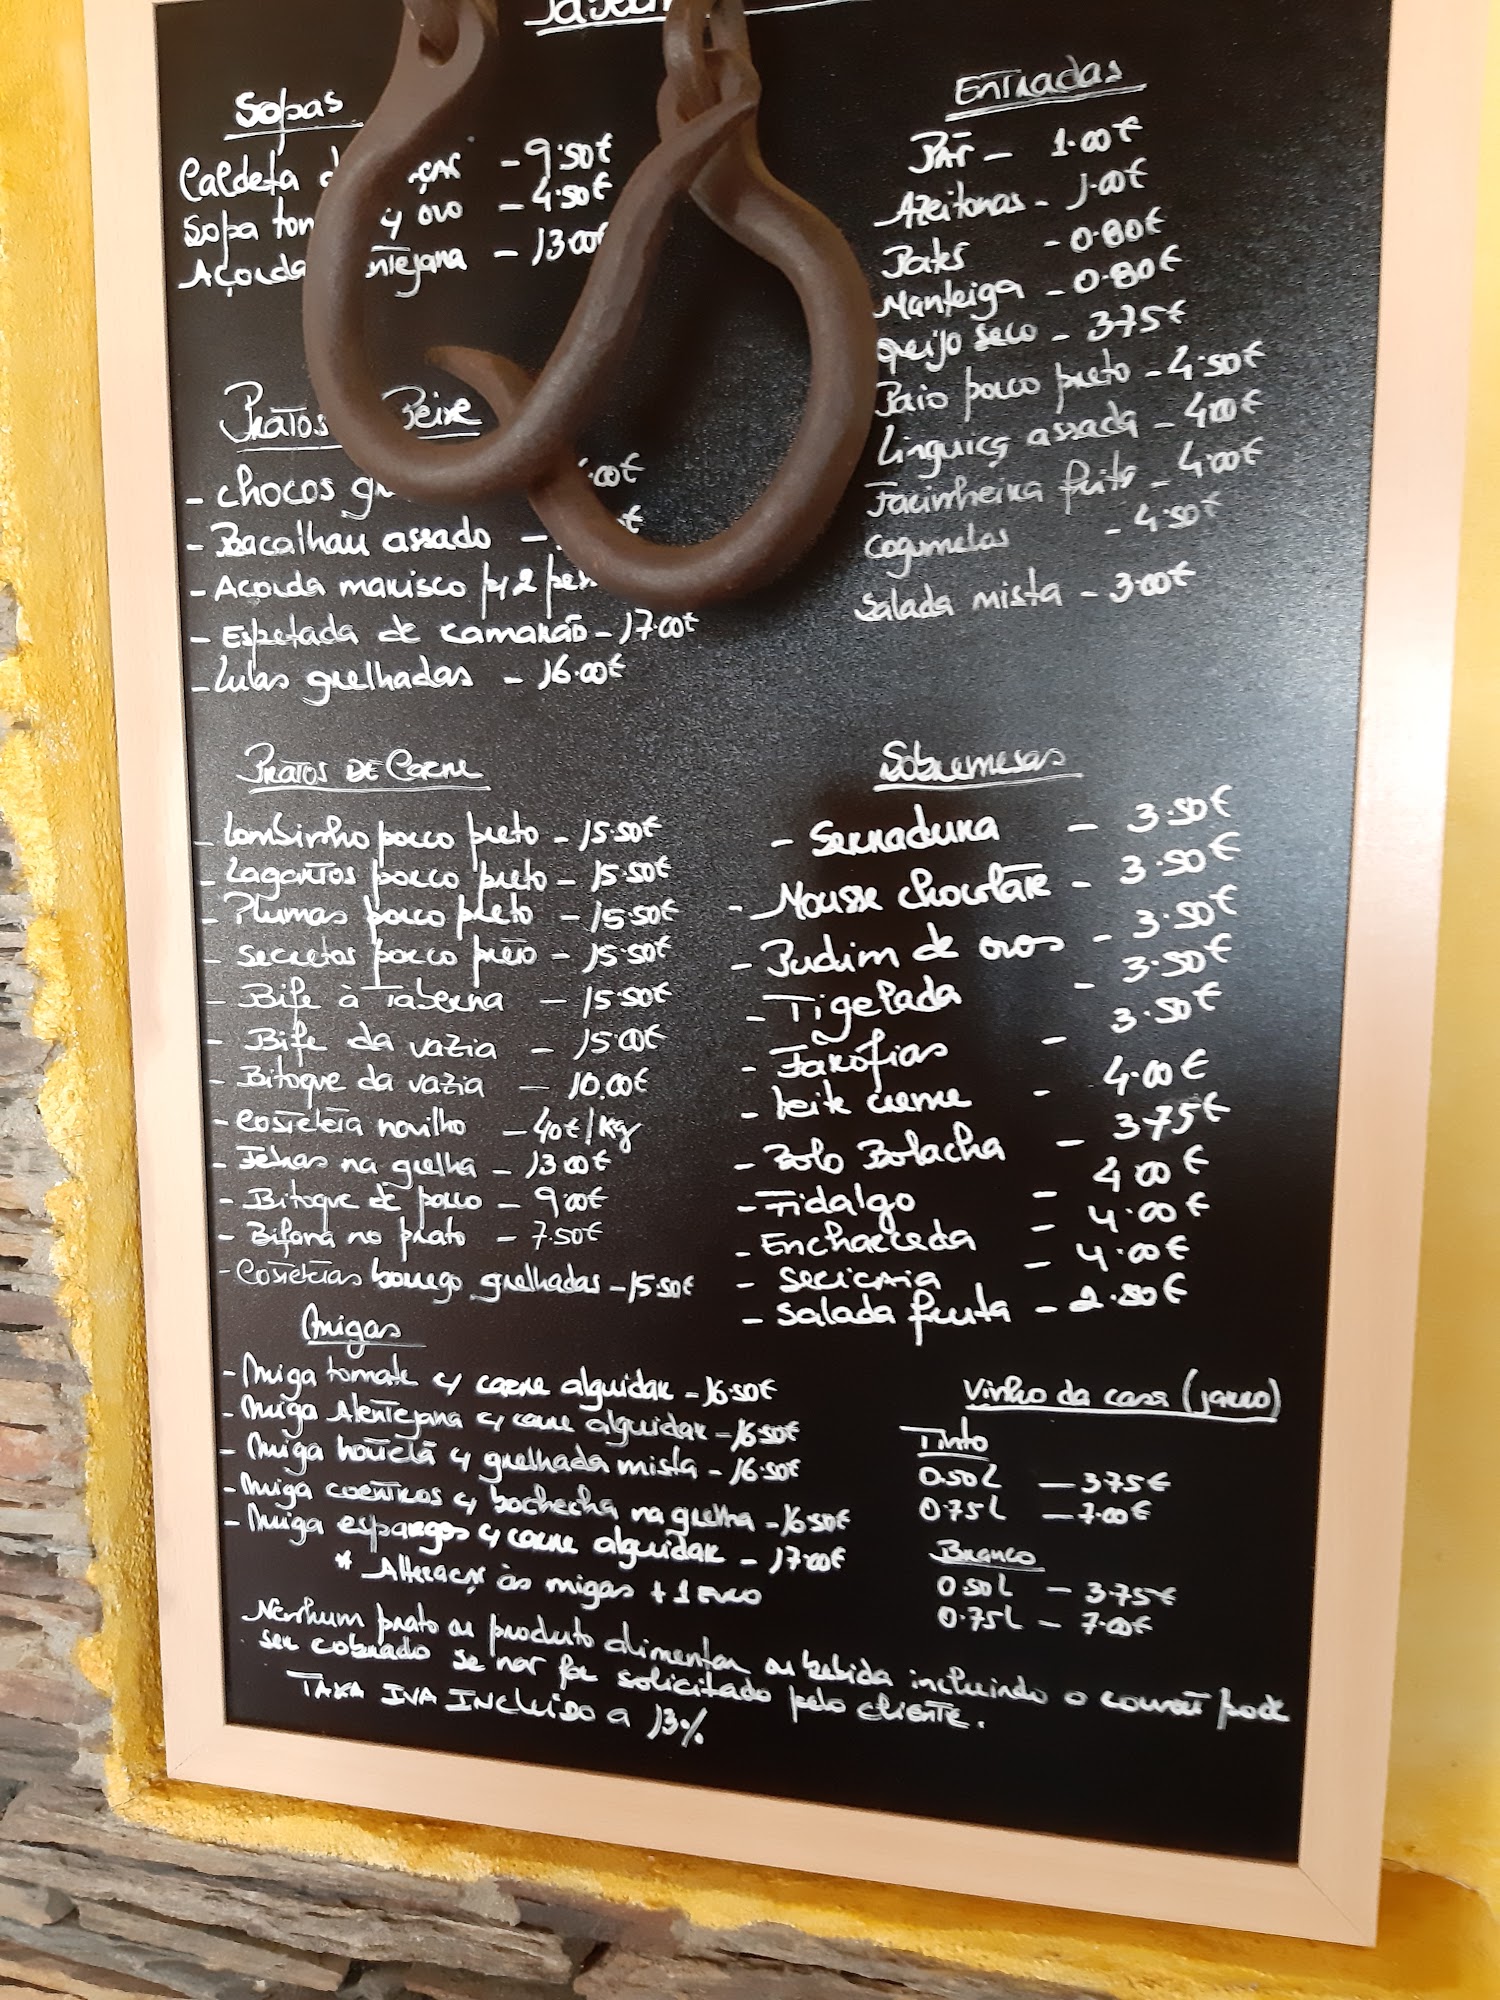 Sopas
Caldeta
Sopa c/ ovo - 4.50€
Açorda - 13.00
- 9.50€
Pratos Peixe
- Chocos
- Bacalhau assado -
- Açorda marisco p/ 2
- Espetada de camarão - 17.00€
- Lulas grelhadas - 16.00€
Pratos de Carne
- Lombinho porco preto - 15.50€
- Lagartos porco preto - 15.50€
- Plumas porco preto - 15.50€
- Secretos porco preto - 15.50€
- Bife à Taberna - 15.50€
- Bife da vazia - 15.00€
- Bitoque da vazia - 10.00€
- Costeleta novilho - 40€/Kg
- Febras na grelha - 13.00€
- Bitoque de porco - 9.00€
- Bifana no prato - 7.50€
- Costeletas borrego grelhadas - 15.50€
Migas
- Miga tomate c/ carne alguidar - 16.50€
- Miga Alentejana c/ carne alguidar - 16.50€
- Miga hortelã c/ grelhada mista - 16.50€
- Miga coentros c/ bochecha na grelha - 16.50€
- Miga espargos c/ carne alguidar - 17.00€
* Alteraçr às migas + 1 Euro
Nenhum prato ou produto alimentar ou bebida incluindo o couvert pode
ser cobrado se não for solicitado pelo cliente.
TAXA IVA INCLUÍDO a 13%
Entradas
Pão - 1.00€
Azeitonas - 1.00€
Patés - 0.80€
Manteiga - 0.80€
Queijo seco - 3.75€
Paio porco preto - 4.50€
Linguiça assada - 4.00€
Farinheira frita - 4.00€
Cogumelos - 4.50€
Salada mista - 3.00€
Sobremesas
- Serradura - 3.50€
- Mousse chocolate - 3.50€
- Pudim de ovos - 3.50€
- Tigelada - 3.50€
- Farófias - 3.50€
- Leite creme - 4.00€
- Bolo Bolacha - 3.75€
- Fidalgo - 4.00€
- Encharcada - 4.00€
- Sericaia - 4.00€
- Salada fruta - 2.80€
Vinho da casa (jarro)
Tinto
0.50L - 3.75€
0.75L - 7.00€
Branco
0.50L - 3.75€
0.75L - 7.00€